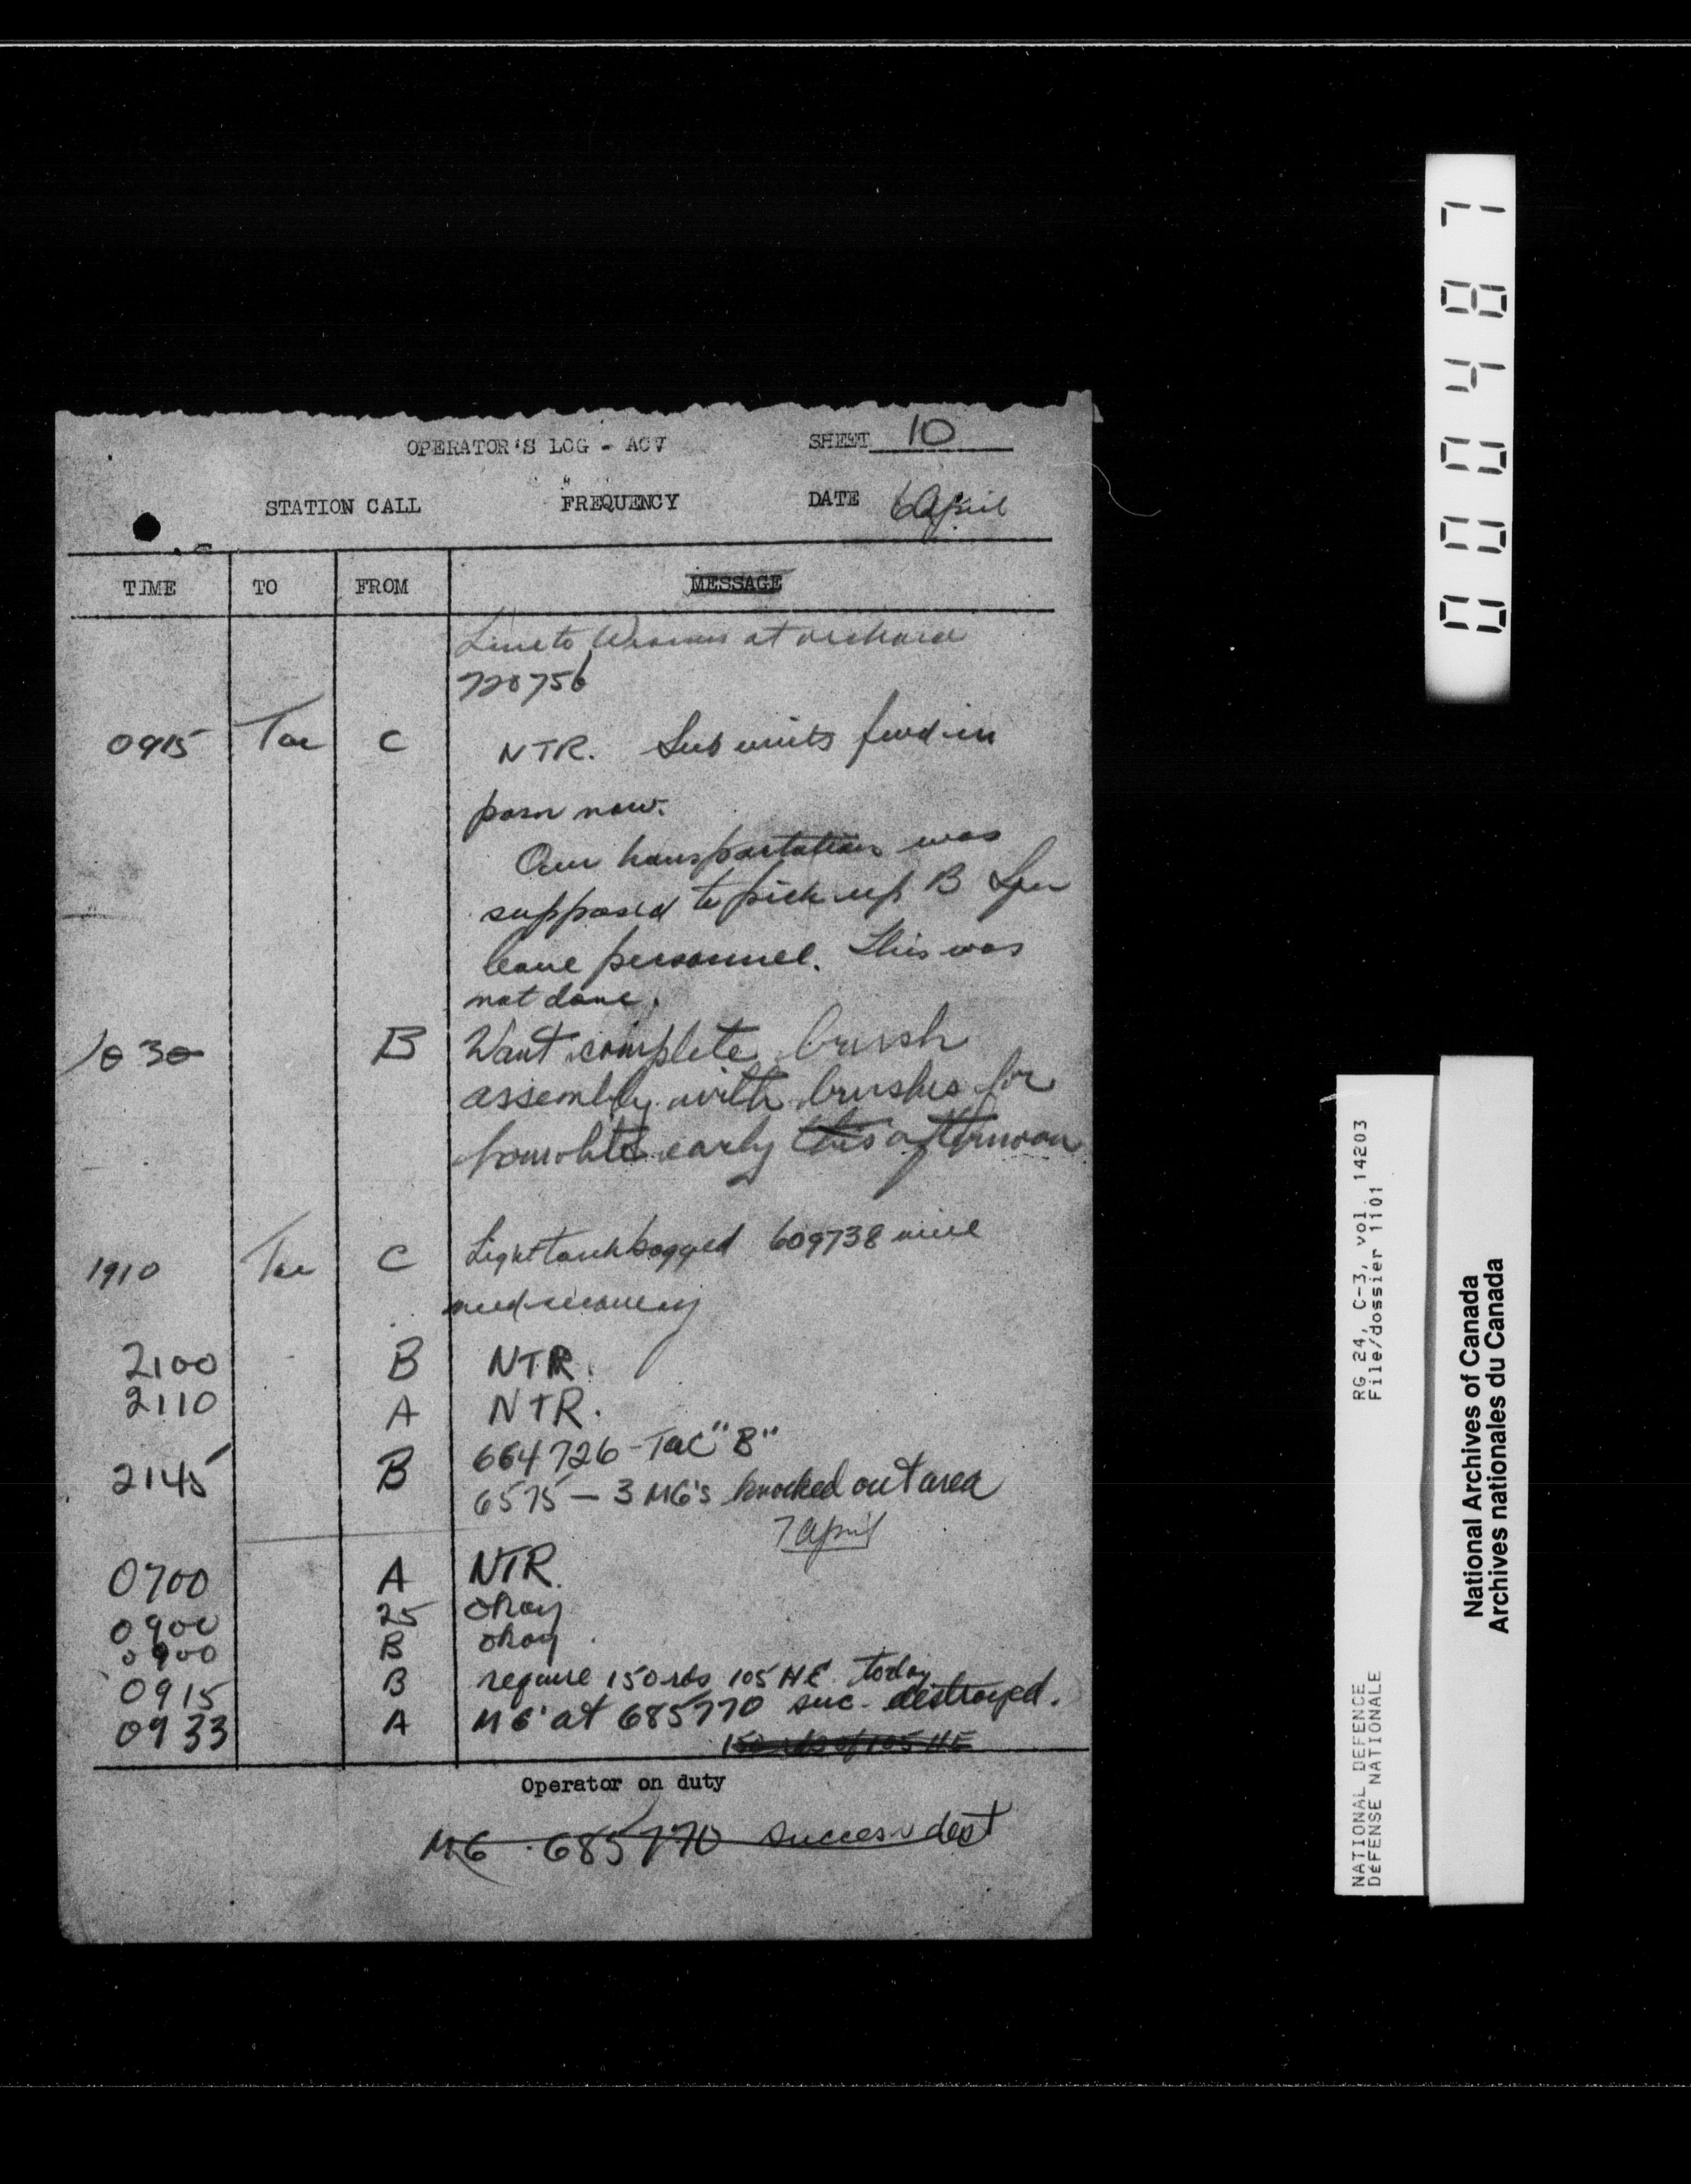 OPERATOR'S LOG - ACV SHEET 10
STATION CALL FREQUENCY DATE 6 April
TIME TO FROM MESSAGE
Line to at orchard
728756
0915 Tac C NTR. Sub units fwd in
posn now.
Our transportation was
supposed to pick up B Sqn
leave personnel. This was
not done.
1030 B Want complete brush
assembly with brushes for
homolite early this afternoon
1910 Tac C Light tank bogged 609738
need recovery
2100 B NTR.
2110 A NTR.
2145 B 664726 - Tac "B"
6575 - 3 MG's knocked out area
7 April
0700 A NTR.
0900 25 okay
0900 B okay.
0915 B require 150 rds 105 HE. today
0933 A MG' at 685770 suc. destroyed.
150 rds of 105 HE
Operator on duty
MG 685770 success dest
0000487
RG 24, C-3, vol. 14203
File/dossier 1101
NATIONAL DEFENCE
DéFENSE NATIONALE
National Archives of Canada
Archives nationales du Canada